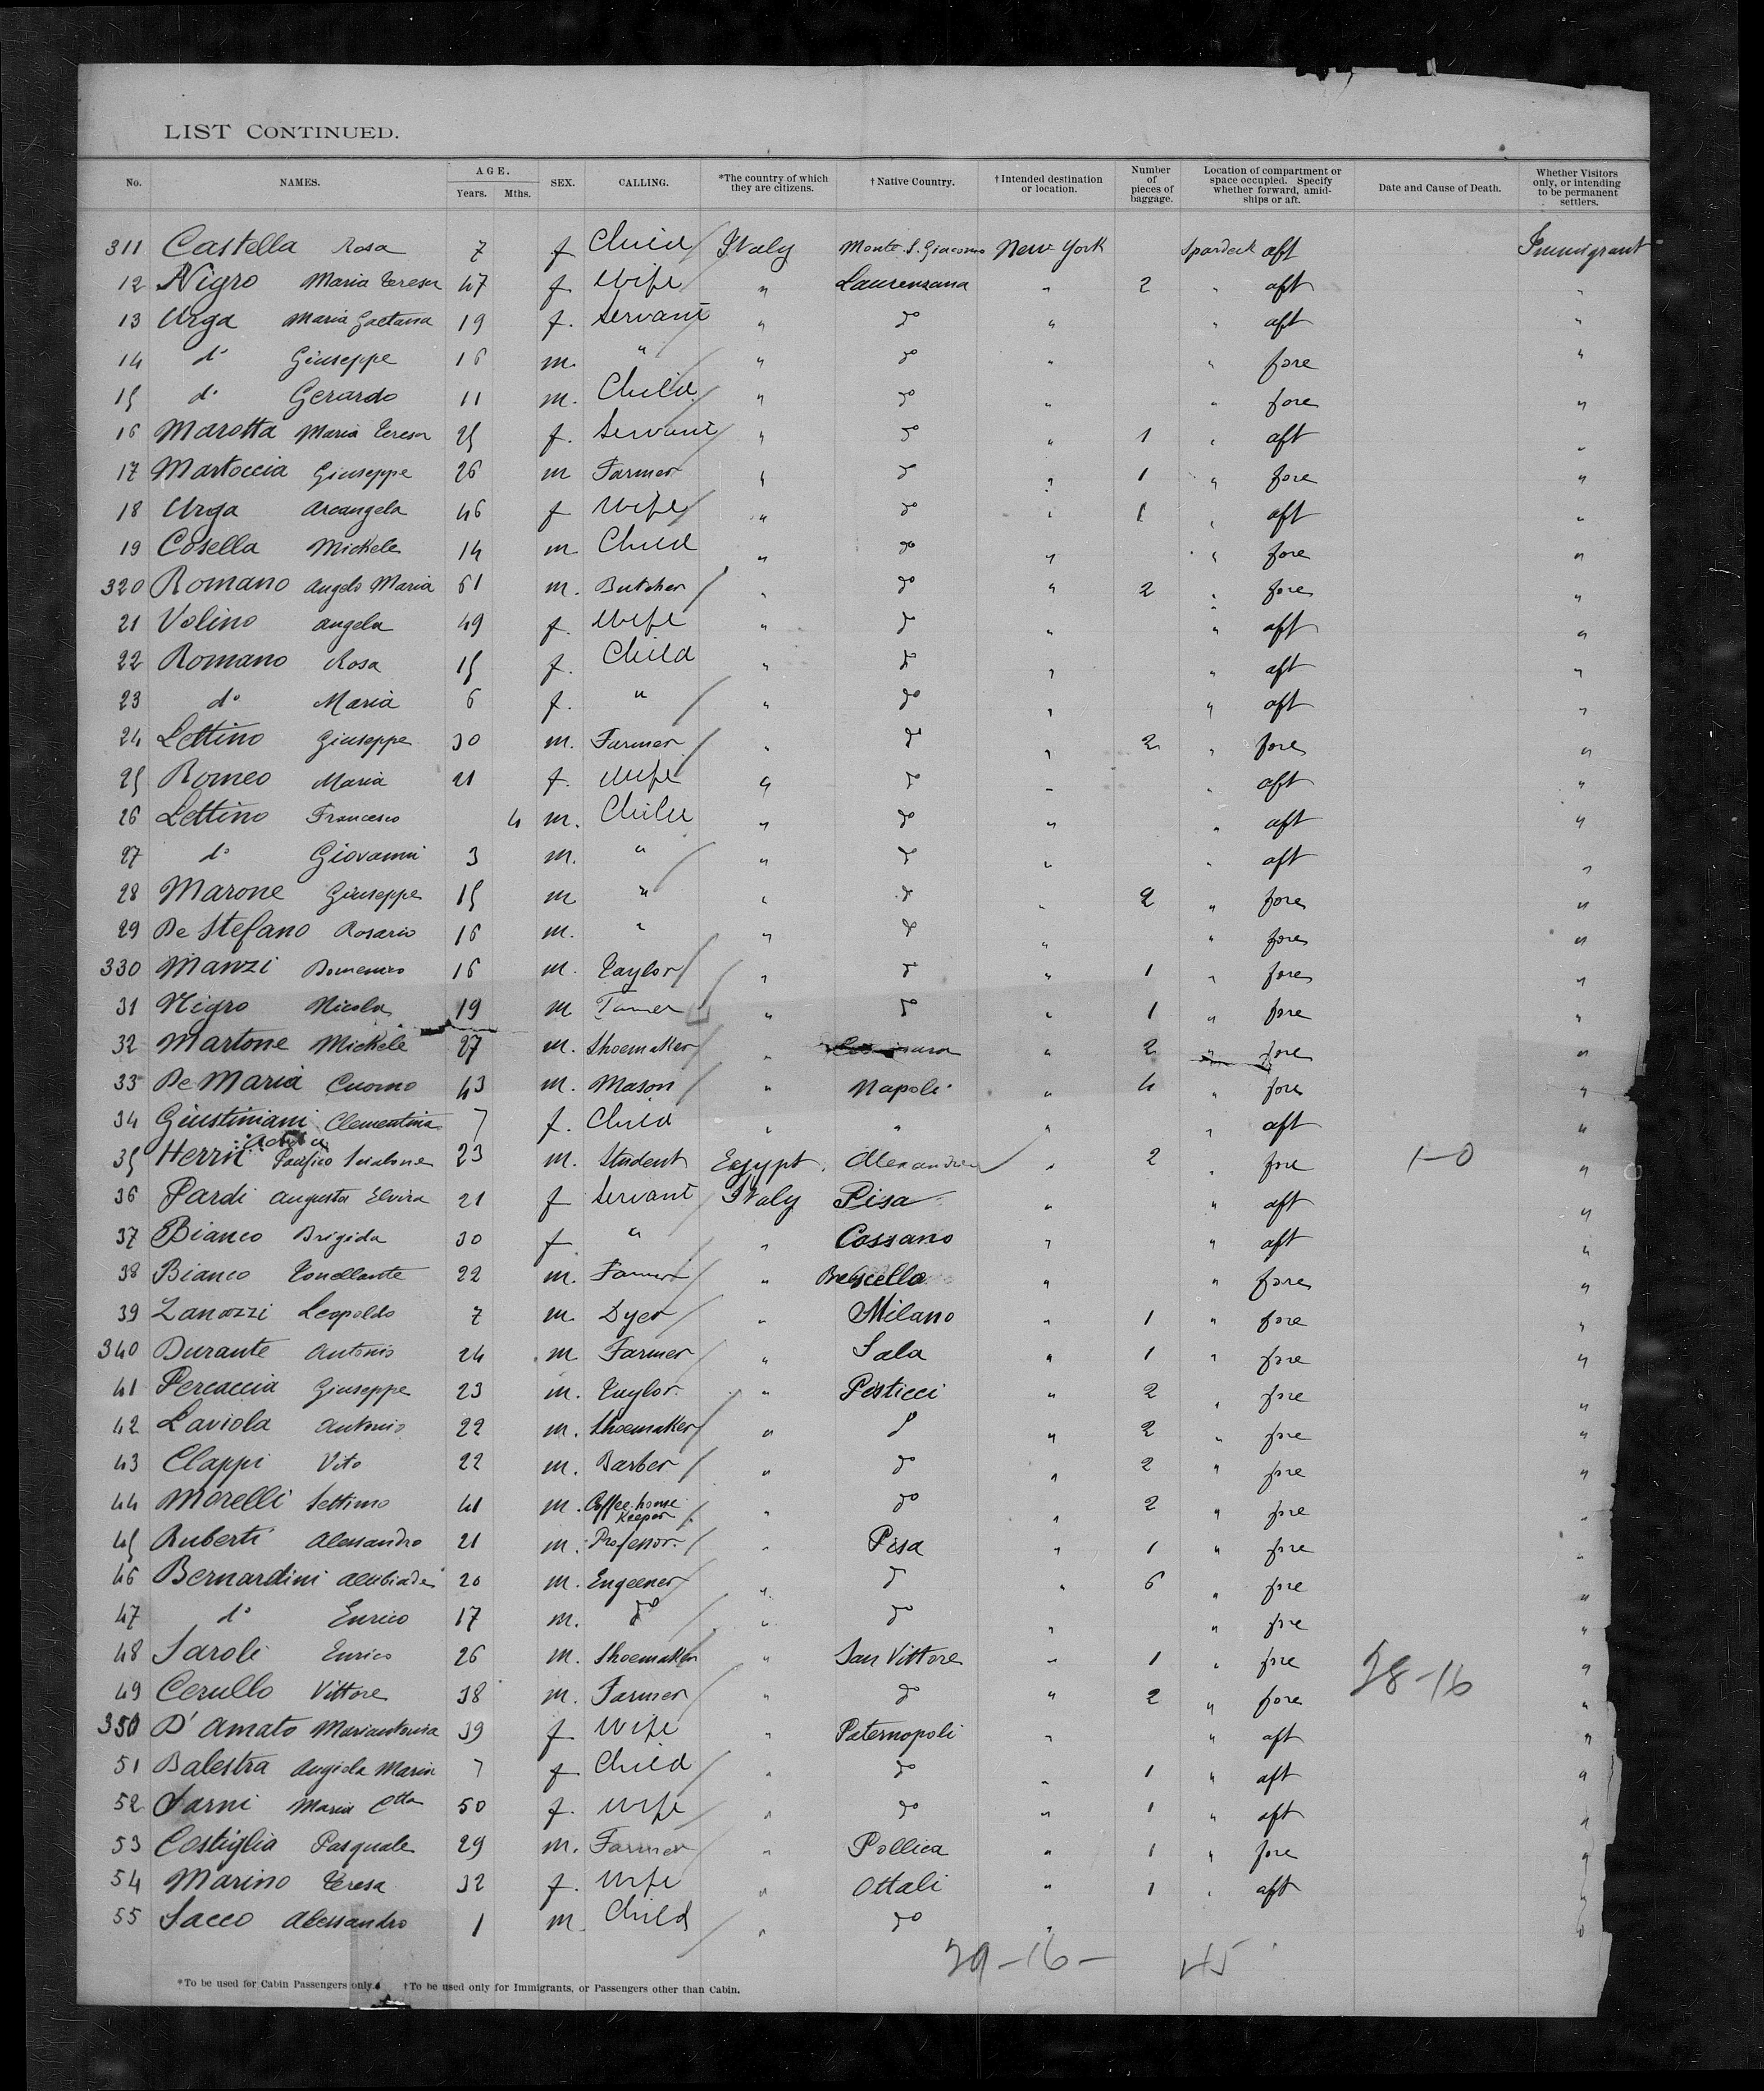 LIST CONTINUED.
No. NAMES. AGE. Years. Mths. SEX. CALLING. *The country of which they are citizens. †Native Country. †Intended destination or location. Number of pieces of baggage. Location of compartment or space occupied. Specify whether forward, amidships or aft. Date and Cause of Death. Whether Visitors only, or intending to be permanent settlers.
311 Castella Rosa 7 f Child Italy Monte S. Giacomo New York Spardeck aft Immigrant
12 Nigro Maria Teresa 47 f Wife " Laurenzana " 2 " aft "
13 Urga Maria Gaetana 19 f. Servant " do " " aft "
14 do Giuseppe 16 m. " " do " " fore "
15 do Gerardo 11 m. Child " do " " fore "
16 Marotta Maria Teresa 25 f. Servant " do " 1 " aft "
17 Martoccia Giuseppe 26 m Farmer " do " 1 " fore "
18 Urga Arcangela 46 f Wife " do " 1 " aft "
19 Cosella Michele 14 m Child " do " " fore "
320 Romano Angelo Maria 61 m. Butcher " do " 2 " fore "
21 Volino Angela 49 f. Wife " do " " aft "
22 Romano Rosa 15 f. Child " do " " aft "
23 do Maria 6 f. " " do " " aft "
24 Lettino Giuseppe 30 m. Farmer " do " 2 " fore "
25 Romeo Maria 21 f. Wife " do " " aft "
26 Lettino Francesco 4 m. Child " do " " aft "
27 do Giovanni 3 m. " " do " " aft "
28 Marone Giuseppe 15 m " " do " 2 " fore "
29 De Stefano Rosario 16 m. " " do " " fore "
330 Manzi Domenico 16 m. Taylor " do " 1 " fore "
31 Nigro Nicola 19 m Farmer " do " 1 " fore "
32 Martone Michele 27 m. Shoemaker " " 2 " fore "
33 De Maria Cuomo 43 m. Mason " Napoli " 4 " fore "
34 Giustiniani Clementina 7 f. Child " " " " aft "
35 Herrit Pacifico 23 m. Student Egypt Alexandria " 2 " fore 1-0 "
36 Pardi Augusta Elvira 21 f Servant Italy Pisa " " aft "
37 Bianco Brigida 30 f " " Cossano " " aft "
38 Bianco Tonellante 22 m. Farmer " " " fore "
39 Zanazzi Leopoldo 7 m. Dyer " Milano " 1 " fore "
340 Durante Antonio 24 m Farmer " Sala " 1 " fore "
41 Percaccia Giuseppe 23 m. Taylor " Pisticci " 2 " fore "
42 Laviola Antonio 22 m. Shoemaker " do " 2 " fore "
43 Clappi Vito 22 m. Barber " do " 2 " fore "
44 Morelli Settimo 41 m. Coffee-house Keeper " do " 2 " fore "
45 Ruberti Alessandro 21 m. Professor " Pisa " 1 " fore "
46 Bernardini Alcibiade 20 m. Engeener " do " 6 " fore "
47 do Enrico 17 m. do " do " " fore "
48 Saroli Enrico 26 m. Shoemaker " San Vittore " 1 " fore 28-16 "
49 Cerullo Vittore 38 m. Farmer " do " 2 " fore "
350 D'Amato Mariantonia 39 f Wife " Paternopoli " " aft "
51 Balestra Angiola Maria 7 f Child " do " 1 " aft "
52 Sarni Maria Ctta 50 f. Wife " do " 1 " aft "
53 Costiglia Pasquale 29 m. Farmer " Pollica " 1 " fore "
54 Marino Teresa 32 f. Wife " Ottali " 1 " aft "
55 Sacco Alessandro 1 m. Child " do "
29-16- 45
*To be used for Cabin Passengers only. †To be used only for Immigrants, or Passengers other than Cabin.